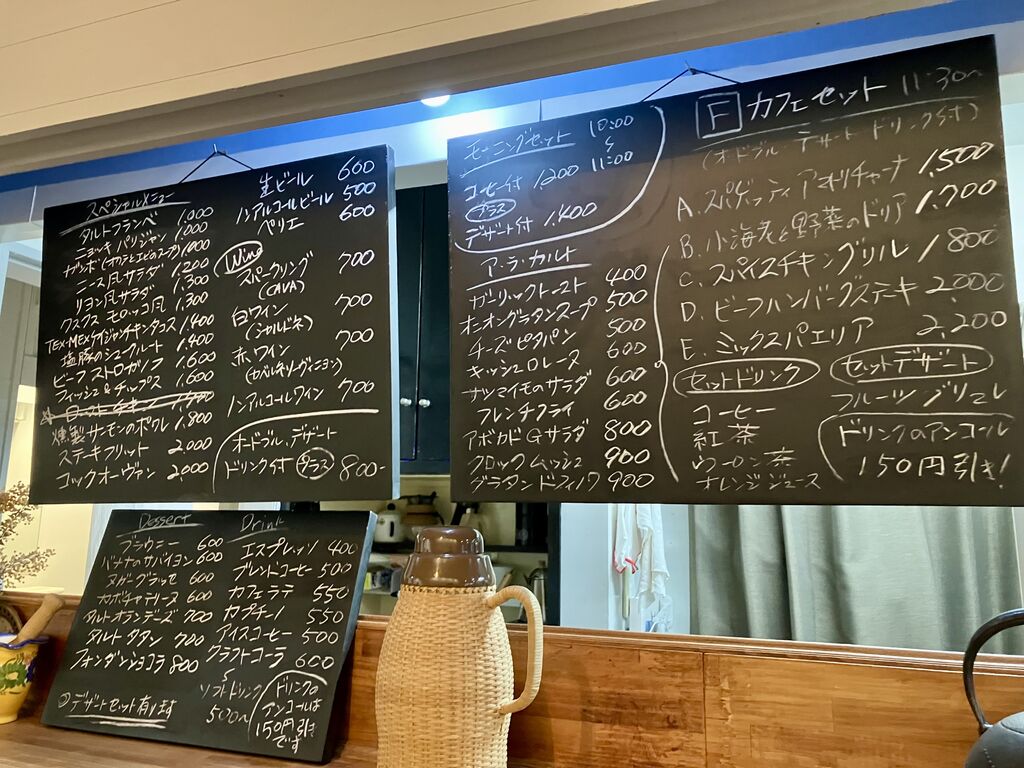 スペシャルメニュー
タルトフランベ 1,000
ニョッキパリジャン 1,000
ガンボ(オクラとエビのスープ) 1,000
ニース風サラダ 1,200
リヨン風サラダ 1,300
クスクス モロッコ風 1,300
TEX-MEXケイジャンチキンタコス 1,400
塩豚のシュークルート 1,400
ビーフストロガノフ 1,600
フィッシュ&チップス 1,600
燻製サーモンのポワレ 1,800
ステーキフリット 2,000
コックオーヴァン 2,000
生ビール 600
ノンアルコールビール 500
ペリエ 600
Wine
スパークリング 700
(CAVA)
白ワイン 700
(シャルドネ)
赤ワイン 700
(カベルネソーヴィニヨン)
ノンアルコールワイン 700
オードブル、デザート
ドリンク付 プラス 800-
モーニングセット 10:00
〜
11:00
コーヒー付 1,200
プラス
デザート付 1,400
ア・ラ・カルト
ガーリックトースト 400
オニオングラタンスープ 500
チーズピタパン 500
キッシュロレーヌ 600
サツマイモのサラダ 600
フレンチフライ 600
アボカドGサラダ 800
クロックムッシュ 900
グラタンドフィノワ 900
F カフェセット 11:30〜
(オードブル デザート ドリンク付)
A. スパゲッティアマトリチャーナ 1,500
B. 小海老と野菜のドリア 1,700
C. スパイスチキングリル 1,800
D. ビーフハンバーグステーキ 2,000
E. ミックスパエリア 2,200
セットドリンク
コーヒー
紅茶
ウーロン茶
オレンジジュース
セットデザート
フルーツブリュレ
ドリンクのアンコール
150円引き!
Dessert
ブラウニー 600
バナナのサバイヨン 600
ヌガーグラッセ 600
カボチャテリーヌ 600
タルトオランデーズ 700
タルトタタン 700
フォンダンショコラ 800
デザートセット有ります
Drink
エスプレッソ 400
ブレンドコーヒー 500
カフェラテ 550
カプチーノ 550
アイスコーヒー 500
クラフトコーラ 600
〜
ソフトドリンク
500〜
ドリンクの
アンコールは
150円引き
です